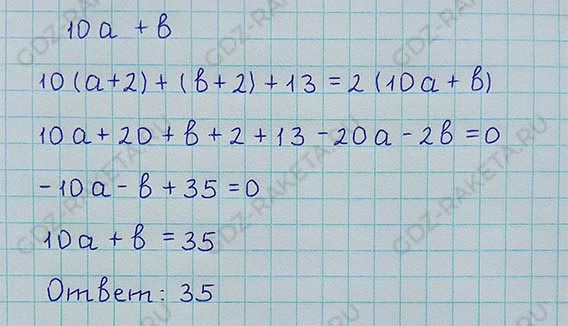 10a + в
10(a+2) + (в+2) + 13 = 2(10a + в)
10a + 20 + в + 2 + 13 - 20a - 2в = 0
-10a - в + 35 = 0
10a + в = 35
Ответ: 35
GDZ-RAKETA.RU